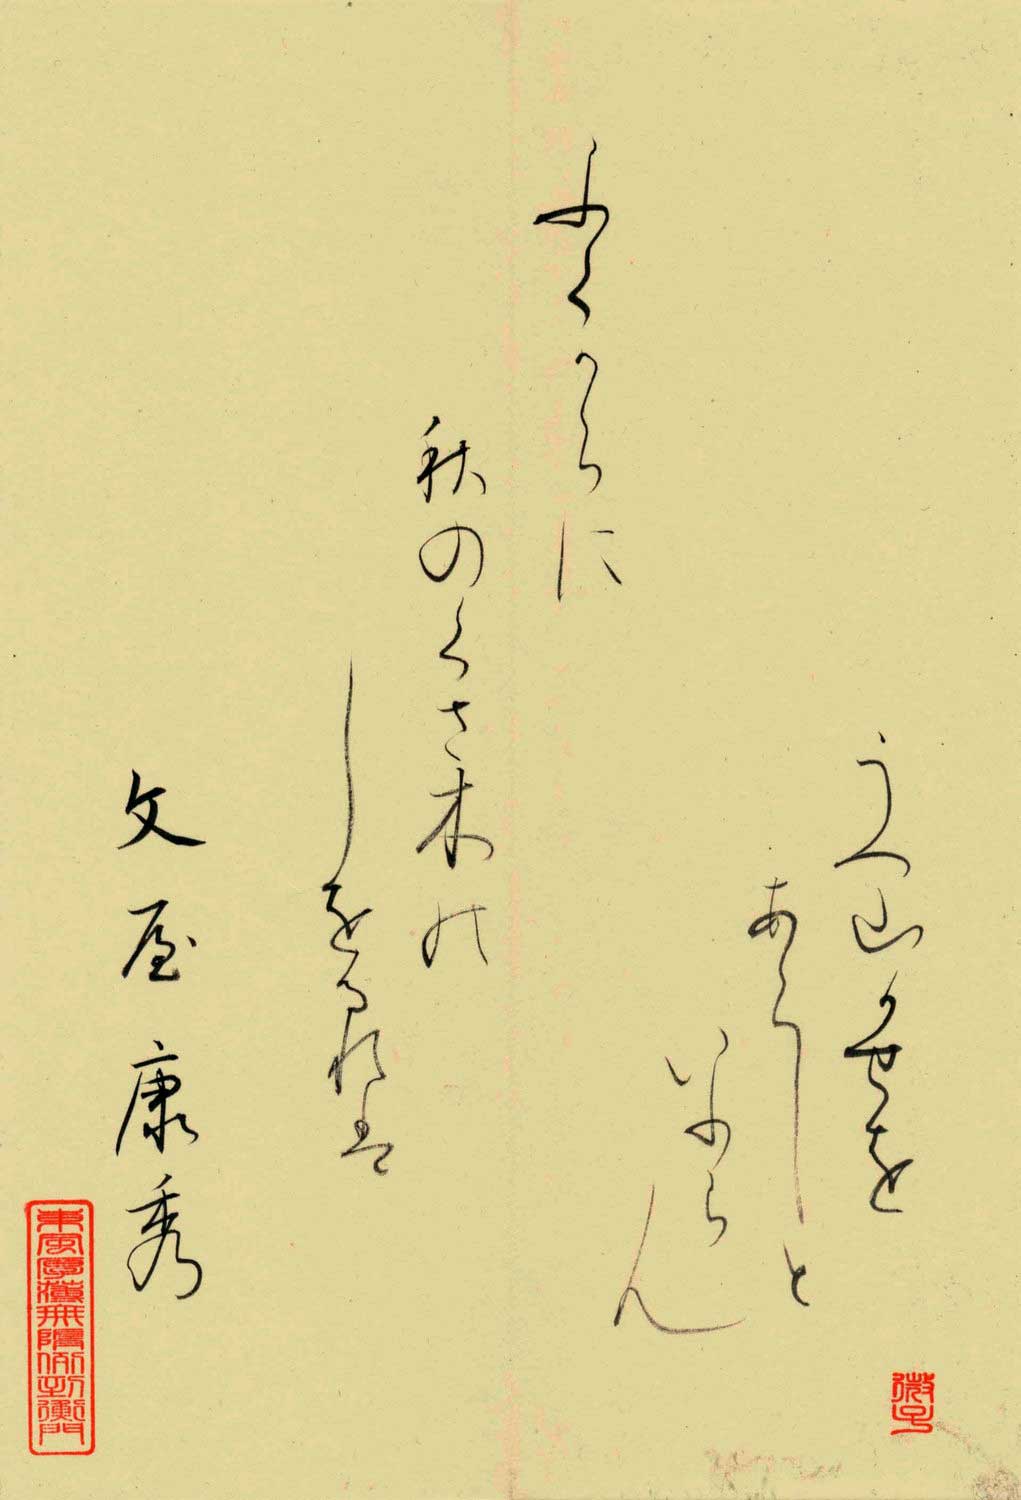 ふくからに
秋のくさ木の
しをるれは
うへ山かせを
あらしと
いふらん
文屋康秀